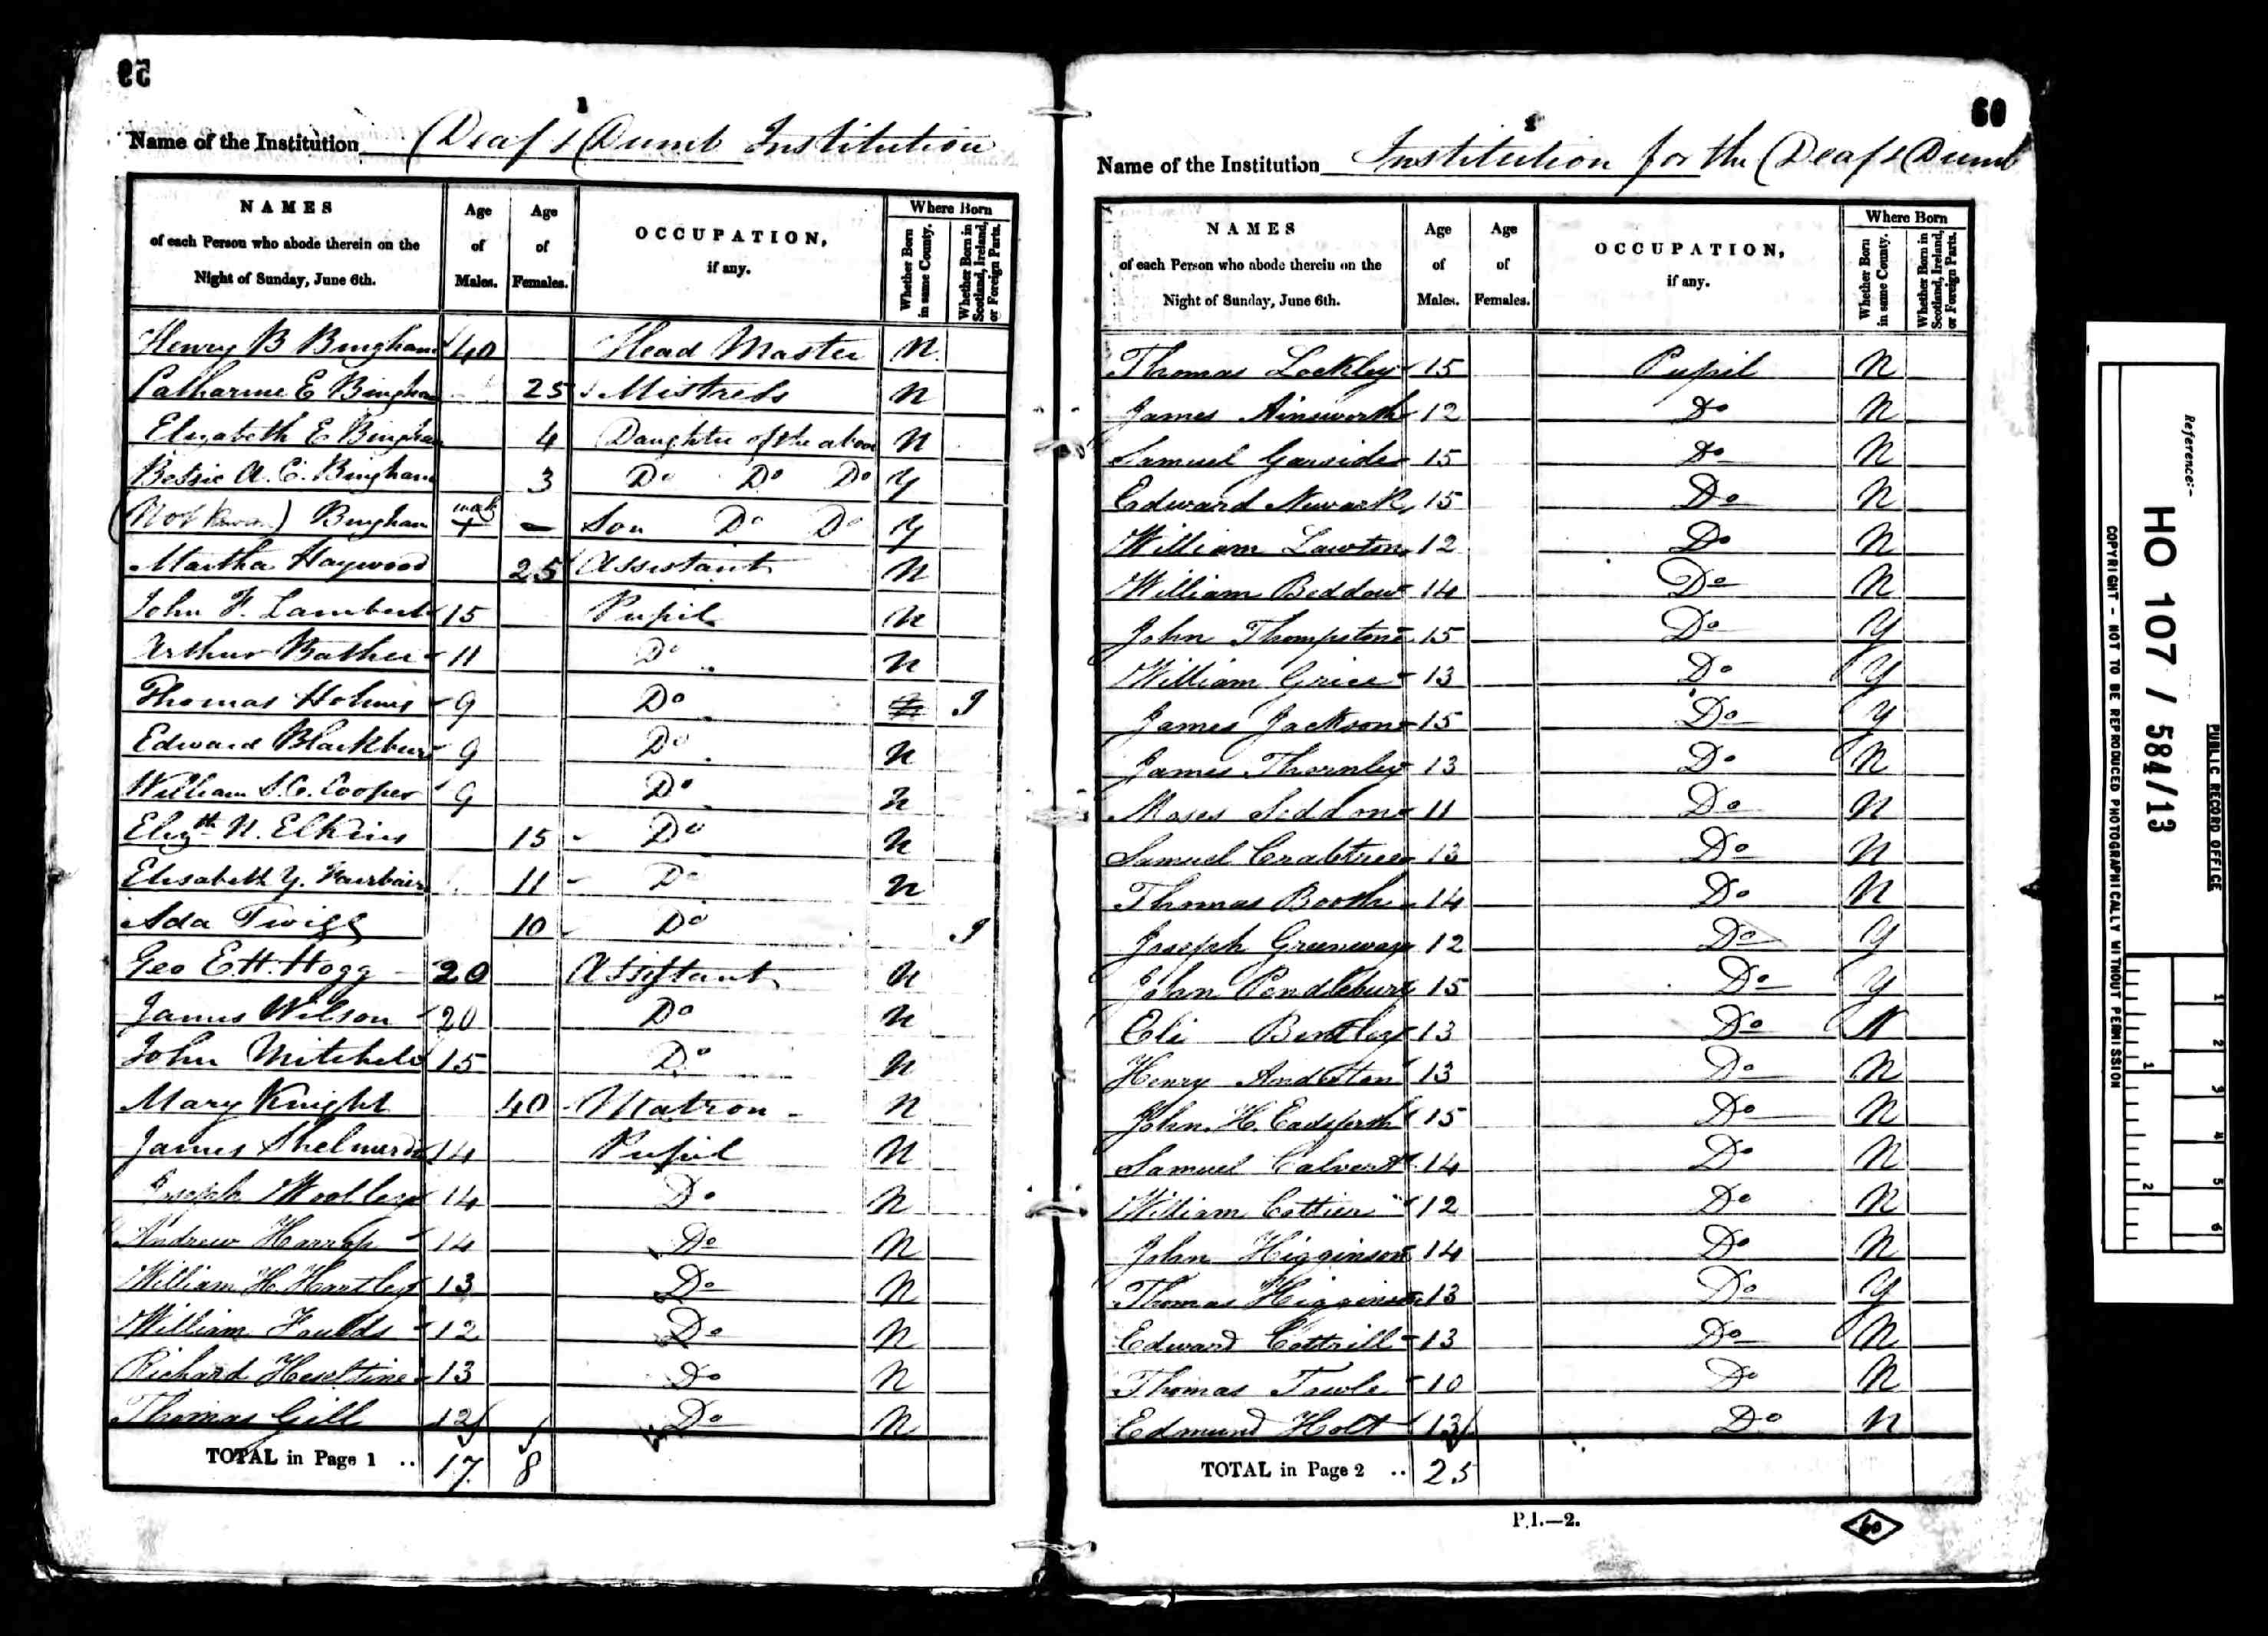 59
1
Name of the Institution Deaf & Dumb Institution
NAMES of each Person who abode therein on the Night of Sunday, June 6th. Age of Males. Age of Females. OCCUPATION, if any. Where Born Whether Born in same County. Whether Born in Scotland, Ireland, or Foreign Parts.
Henry B Bingham 40 Head Master N.
Catharine E Bingham 25 Mistress N
Elizabeth E Bingham 4 Daughter of the above N
Bessie A. C. Bingham 3 Do Do Do Y
(Not Known) Bingham — Son Do Do Y
Martha Haywood 25 Assistant N
John F. Lambert 15 Pupil N
Arthur Bather 11 Do N
Thomas Holmes 9 Do I
Edward Blackburn 9 Do N
William S. C. Cooper 9 Do N
Elizth N. Elkins 15 Do N
Elisabeth Y. Fairbairn 11 Do N
Ada Twigg 10 Do I
Geo E. H. Hogg 20 Assistant N
James Wilson 20 Do N
John Mitchell 15 Do N
Mary Knight 40 Matron N
James Shelmerdine 14 Pupil N
Joseph Woolley 14 Do N
Andrew Harrop 14 Do N
William H. Hartley 13 Do N
William Foulds 12 Do N
Richard Heseltine 13 Do N
Thomas Gill 12 Do N
TOTAL in Page 1 .. 17 8
60
2
Name of the Institution Institution for the Deaf & Dumb
NAMES of each Person who abode therein on the Night of Sunday, June 6th. Age of Males. Age of Females. OCCUPATION, if any. Where Born Whether Born in same County. Whether Born in Scotland, Ireland, or Foreign Parts.
Thomas Lockley 15 Pupil N
James Ainsworth 12 Do N
Samuel Garside 15 Do N
Edward Newark 15 Do N
William Lawton 12 Do N
William Beddow 14 Do N
John Thompstone 15 Do Y
William Grice 13 Do Y
James Jackson 15 Do Y
James Thornley 13 Do N
Moses Seddon 11 Do N
Samuel Crabtree 13 Do N
Thomas Booth 14 Do N
Joseph Greenway 12 Do Y
John Pendlebury 15 Do Y
Eli Bentley 13 Do N
Henry Anderton 13 Do N
John. H. 15 Do N
Samuel Calvert 14 Do N
William Cottier 12 Do N
John Higginson 14 Do N
Thomas Higginson 13 Do Y
Edward Cottrill 13 Do N
Thomas Towle 10 Do N
Edmund Holt 13 Do N
TOTAL in Page 2 .. 25
P.1.—2.
60
Reference:-
HO 107 / 584/13
PUBLIC RECORD OFFICE
COPYRIGHT - NOT TO BE REPRODUCED PHOTOGRAPHICALLY WITHOUT PERMISSION
1 2 3 4 5 6
1 2